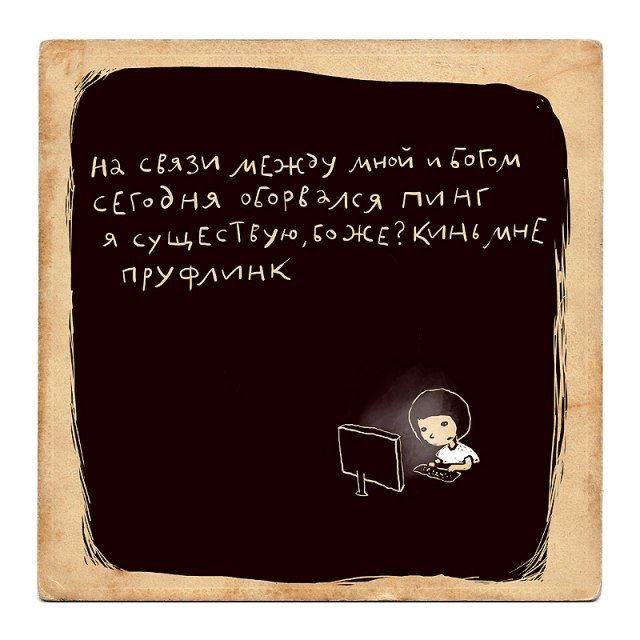 на связи между мной и богом
сегодня оборвался пинг
я существую, боже? кинь мне
пруфлинк